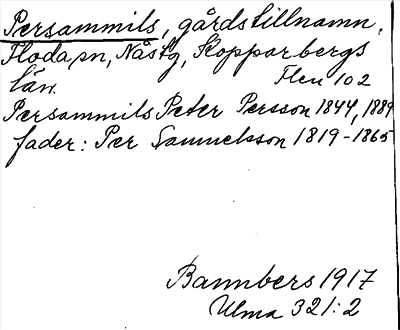 Persammils, gårdstillnamn,
Floda sn, Nås tg, Kopparbergs
län. Flen 102
Persammils Peter Persson 1844, 1889
fader: Per Samuelsson 1819-1865
Bannbers 1917
Ulma 321:2